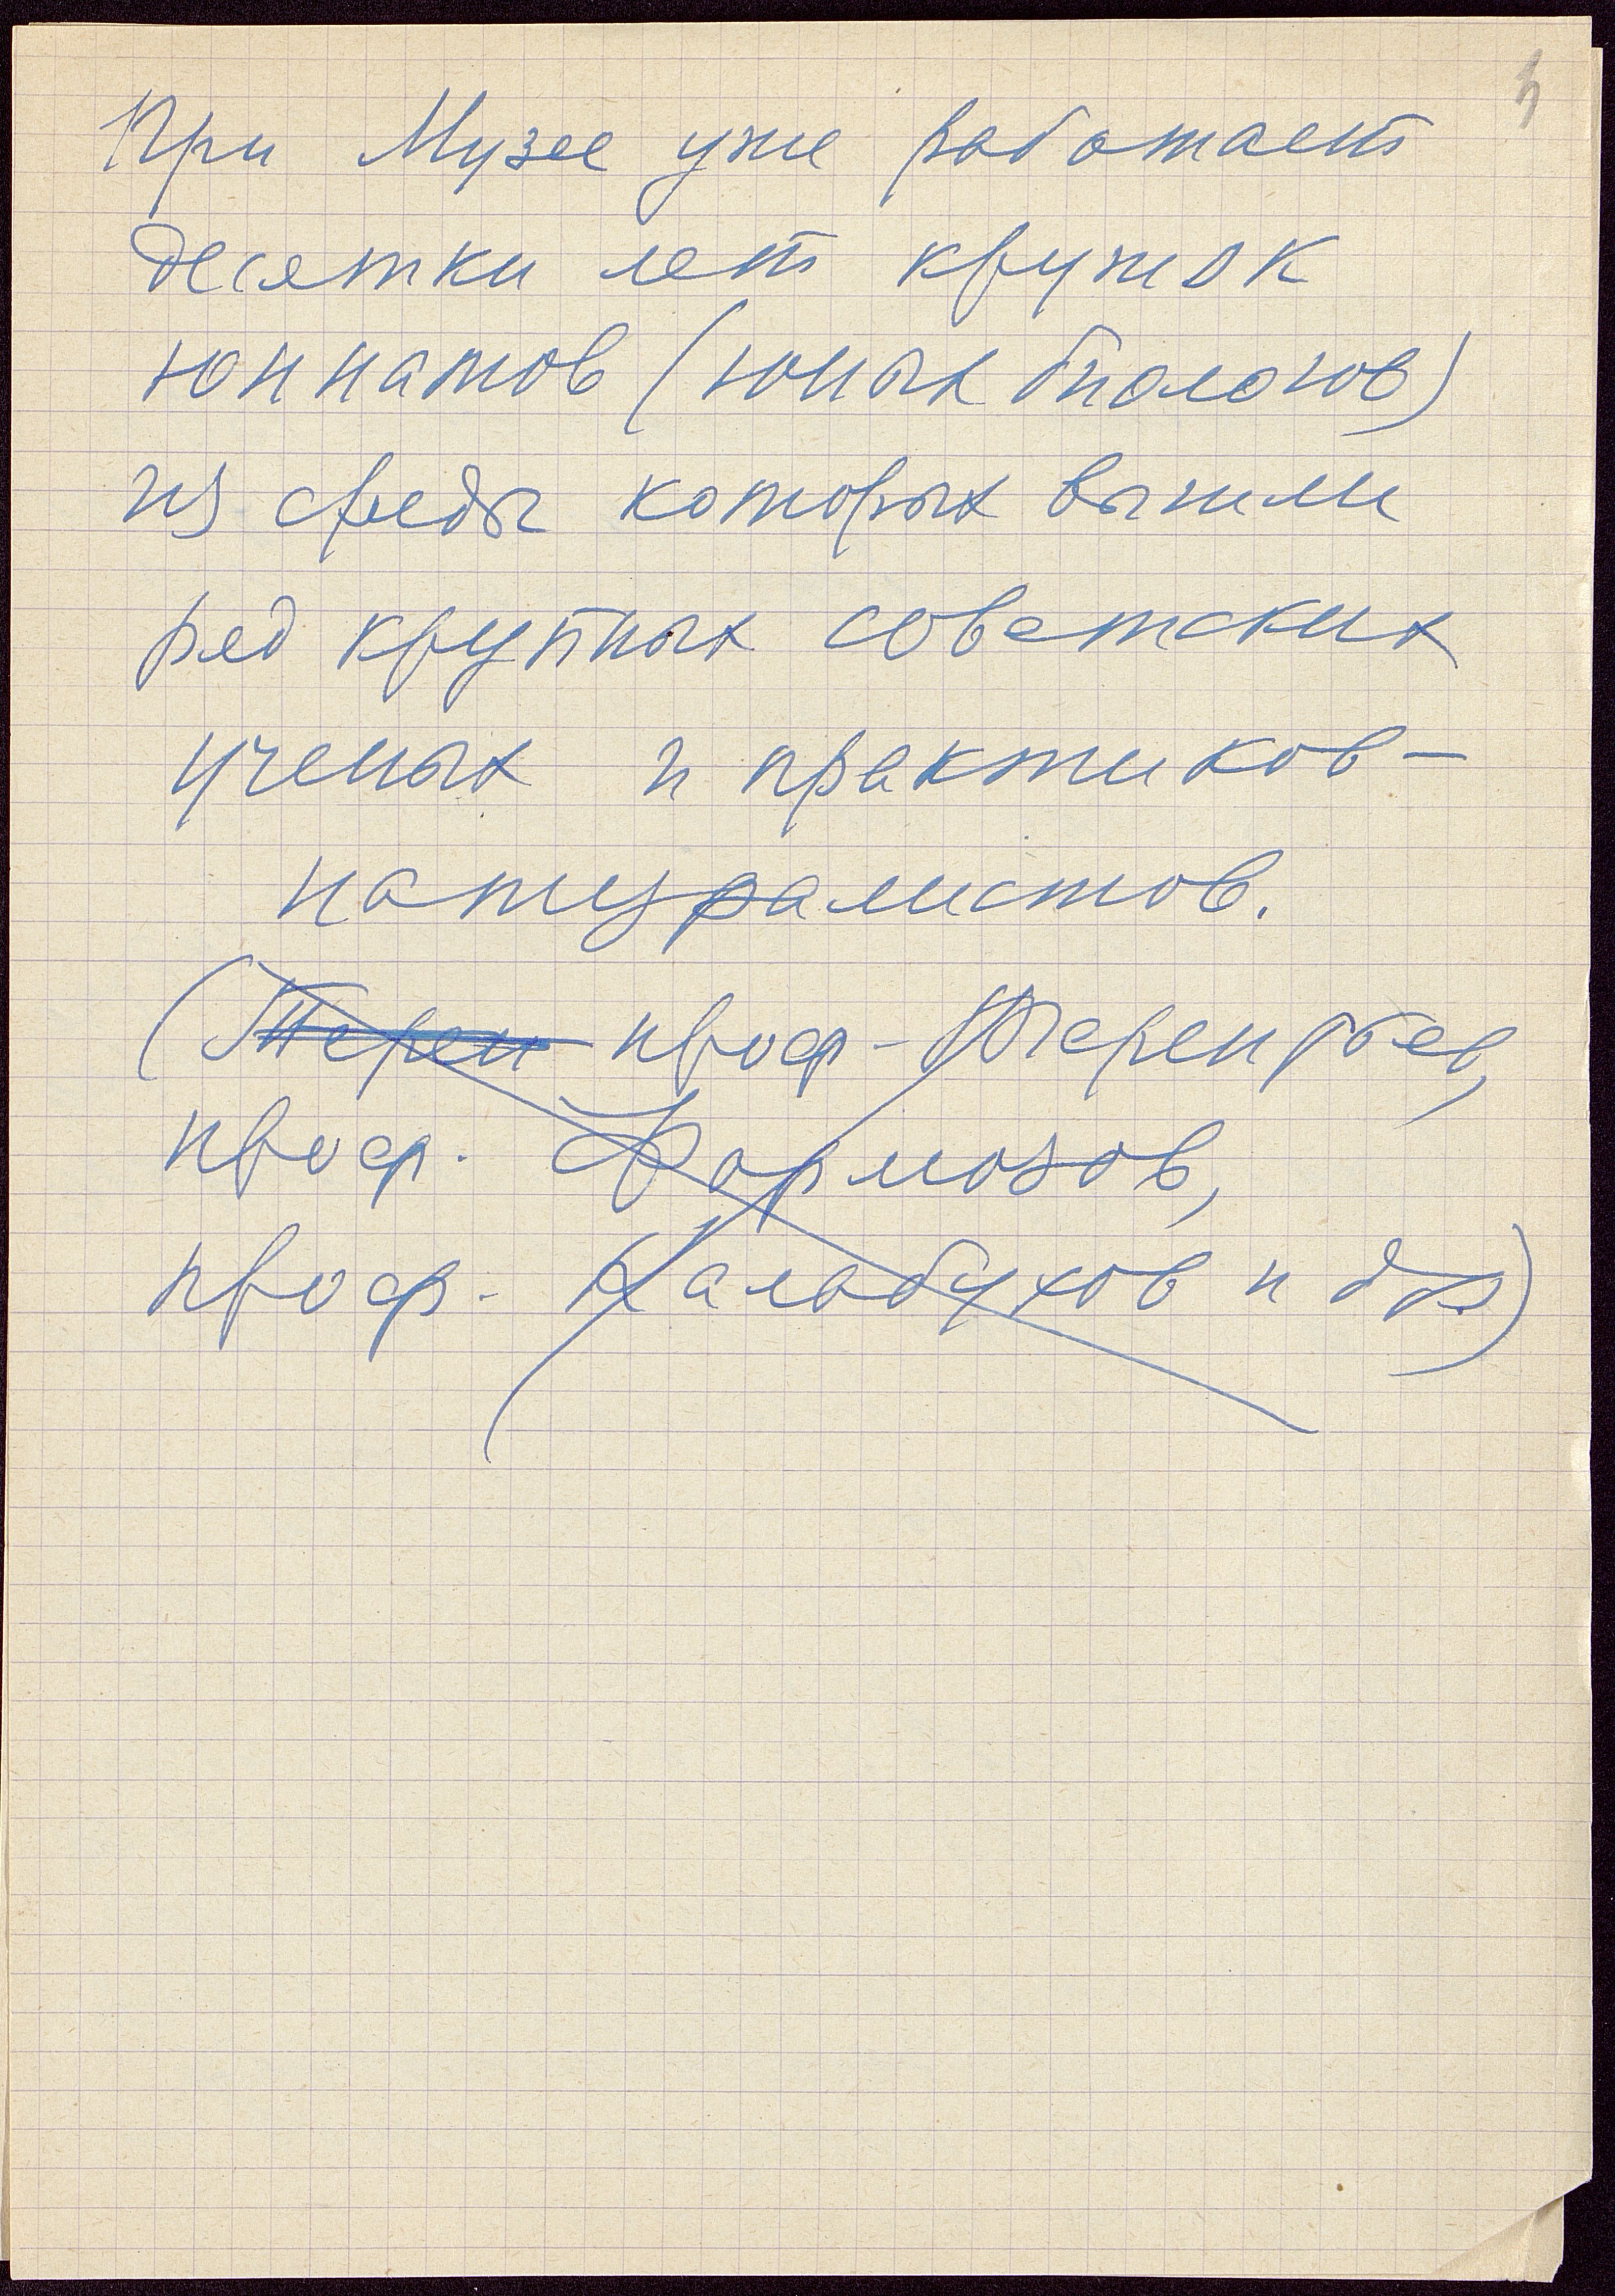 При Музее уже работает
десятки лет кружок
юннатов (юных биологов)
из среды которых вышли
ряд крупных советских
ученых и практиков-
натуралистов.
(Терен проф - Терентьев,
проф. Формозов,
проф. Калабухов и др.)